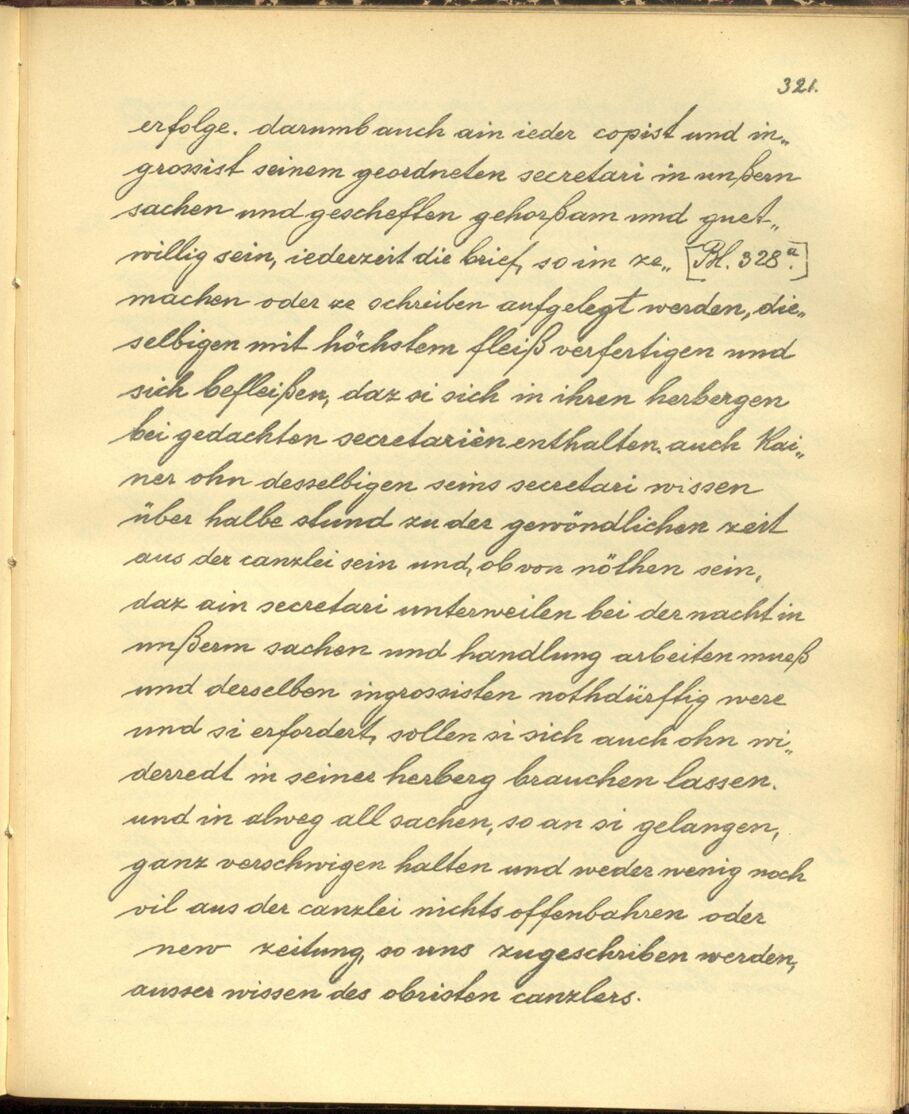 321.
erfolge. darumb auch ain ieder copist und in„
grossist seinem geordneten secretari in unßern
sachen und gescheften gehorßam und guet„
willig sein, iederzeit die brief, so im ze„ [Bl. 328a.]
machen oder ze schreiben aufgelegt werden, die„
selbigen mit höchstem fleiß verfertigen und
sich befleißen, daz si sich in ihren herbergen
bei gedachten secretariën enthalten. auch kai„
ner ohn desselbigen seins secretari wissen
über halbe stund zu der gewöndlichen zeit
aus der canzlei sein und, ob von nöthen sein,
daz ain secretari unterweilen bei der nacht in
unßerm sachen und handlung arbeiten mueß
und derselben ingrossisten nothdürftig were
und si erfordert, sollen si sich auch ohn wi„
derredt in seiner herberg brauchen lassen.
und in alweg all sachen, so an si gelangen,
ganz verschwigen halten und weder wenig noch
vil aus der canzlei nichts offenbahren oder
new zeitung, so uns zugeschriben werden,
ausser wissen des obristen canzlers.